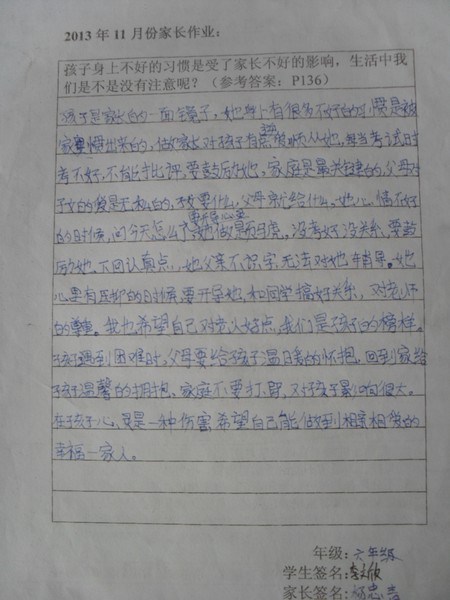 2013 年 11 月份家长作业:
孩子身上不好的习惯是受了家长不好的影响，生活中我
们是不是没有注意呢？（参考答案：P136）
孩子是家长的一面镜子，她身上有很多不好的习惯是被
家里惯出来的，做家长对孩子有些顺从她，想当考试时
考不好，不能批评，要鼓励她，家庭是最关键的，父母对
子女的爱是无私的，要什么，父母就给什么，她心情不好
的时候，问今天怎么了，她做题马虎，没考好没关系，要鼓
要细心点
励她，下回认真点，她父亲不识字，无法对她辅导。她
心里有压抑的时候，要开导她，和同学搞好关系，对老师
的尊重。我也希望自己对家人好点，我们是孩子的榜样。
孩子遇到困难时，父母要给孩子温暖的怀抱，回到家给
孩子温馨的拥抱，家庭不要打骂，对孩子影响很大。
在孩子心里是一种伤害，希望自己能做到相亲相爱的
幸福一家人。
年级:六年级
学生签名:李
家长签名: